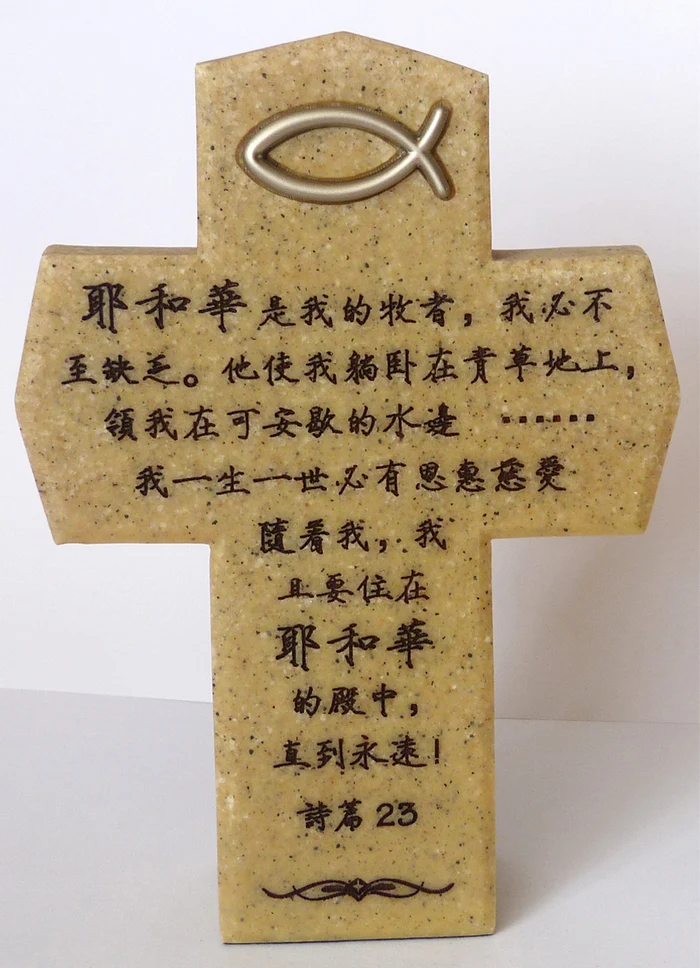 耶和華是我的牧者，我必不
至缺乏。他使我躺卧在青草地上，
領我在可安歇的水邊 ······
我一生一世必有恩惠慈愛
隨着我，我
且要住在
耶和華
的殿中，
直到永遠！
詩篇 23